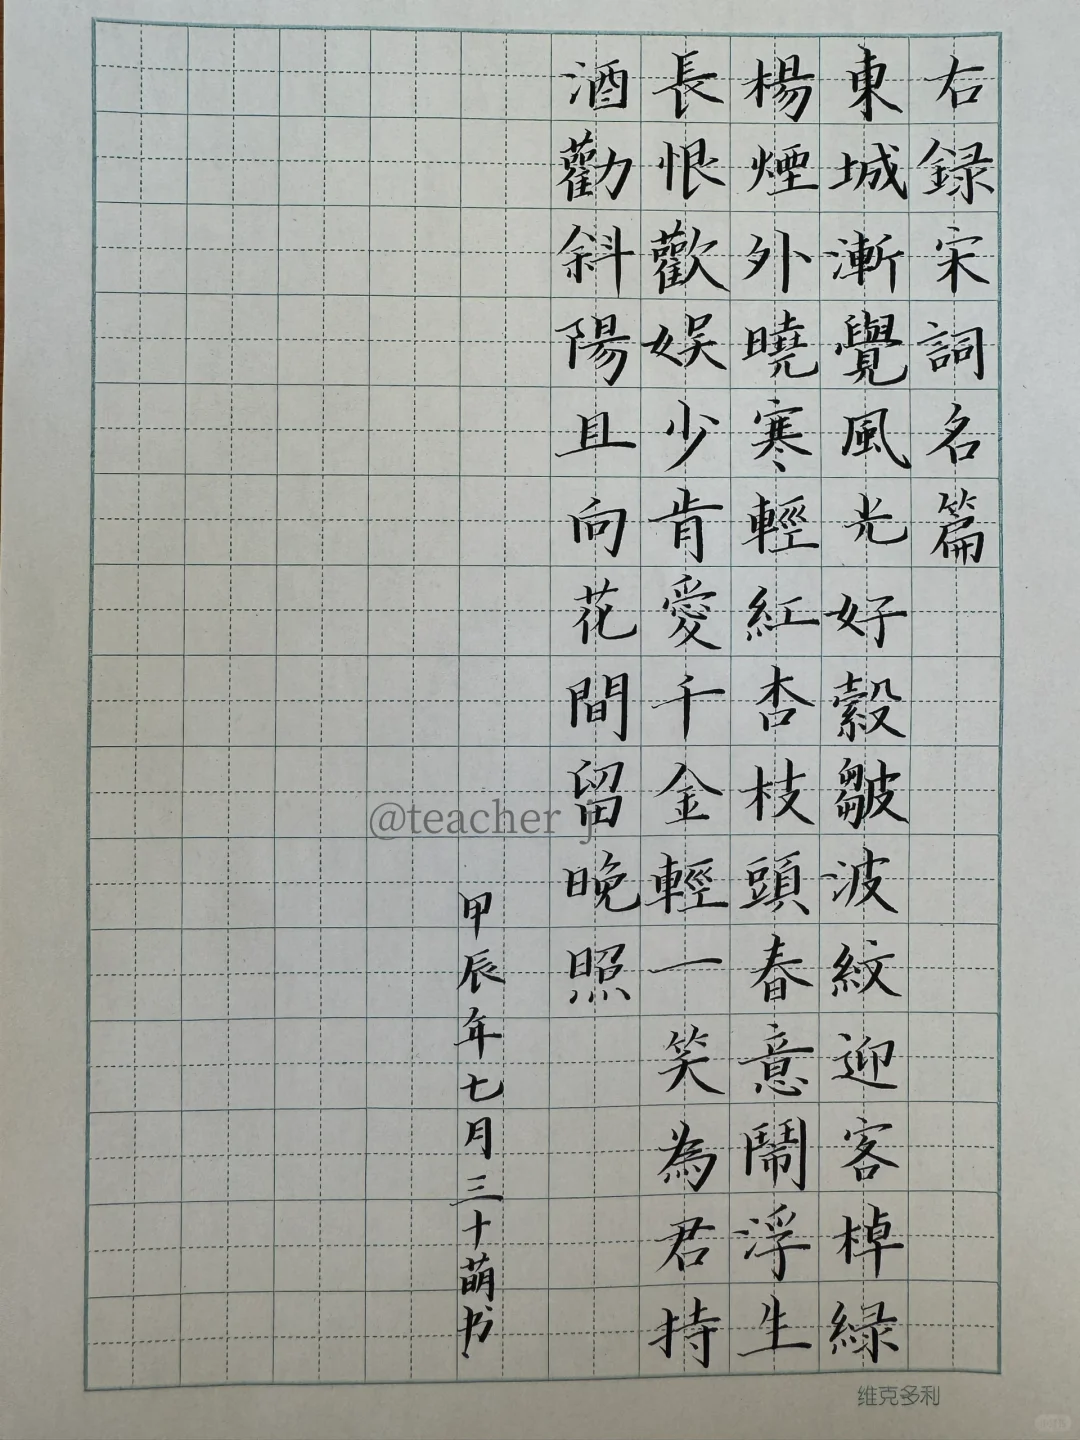 右録宋詞名篇
東城漸覺風光好縠皺波紋迎客棹緑
楊煙外曉寒輕紅杏枝頭春意鬧浮生
長恨歡娱少肯愛千金輕一笑為君持
酒勸斜陽且向花間留晚照
甲辰年七月三十萌书
@teacher j
维克多利